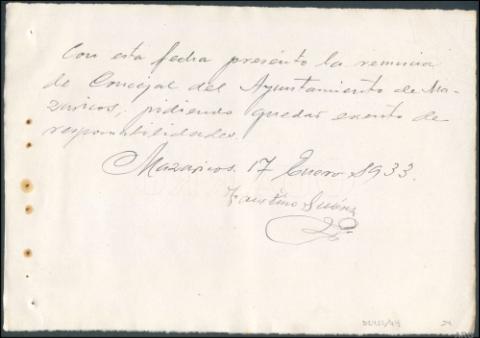 Con esta fecha presento la renuncia
de Concejal del Ayuntamiento de Ma-
zaricos, pidiendo quedar exento de
responsabilidades.
Mazaricos 17 Enero 1933.
Faustino